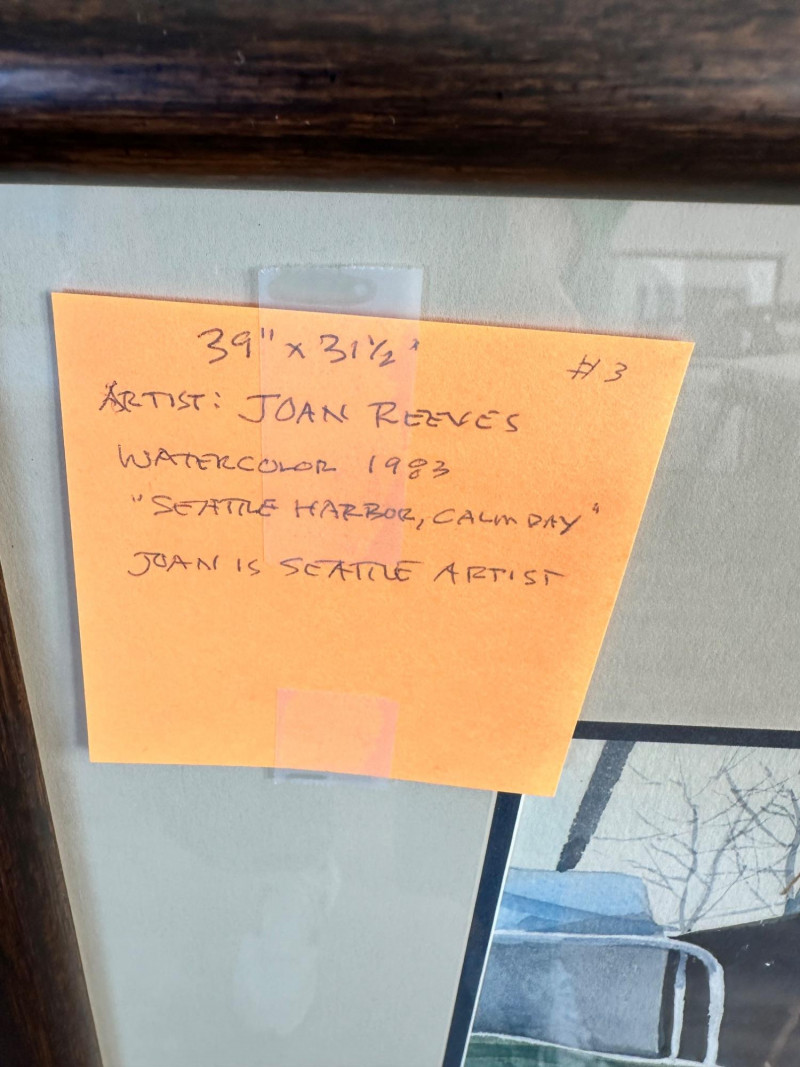 39" x 31½"
#3
ARTIST: JOAN REEVES
WATERCOLOR 1983
"SEATTLE HARBOR, CALM DAY"
JOAN IS SEATTLE ARTIST